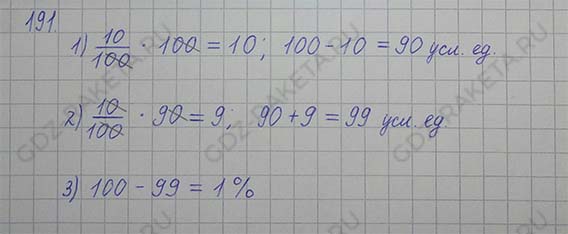 191.
1) 10/100 · 100 = 10; 100 - 10 = 90 усл. ед.
2) 10/100 · 90 = 9; 90 + 9 = 99 усл. ед
3) 100 - 99 = 1%
GDZ-RAKETA.RU
GDZ-RAKETA.RU
GDZ-RAKETA.RU